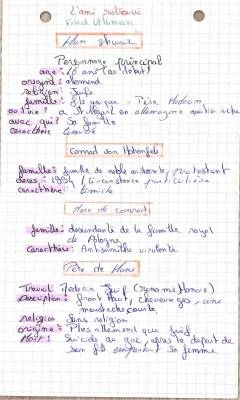 L'ami retrouvé
Fred Uhlman
Hans
Personnage principal
age: 16 ans (au debut)
origine: allemand
religion: Juif
famille: fils unique - Père Medecin,
ou vire? a Stuttgart en allemagne
avec qui? Sa famille
caractère timide
Conrad von Hohenfels
famille: famille de noble protestant
deces: 1944 / circonstance particulière
caractère: timide
Mere de conrad
famille: descendante de la famille royal
de Pologne
caractère: Antisemitte virulente
Père de Hans
Travail Medecin Juif
Description: front Haut, cheveux gris, une
moustache courte
religion Sans religion
origine: Plus allemand que juif
Mort: Suicida au gaz, après le depart de
son fils emportant sa femme